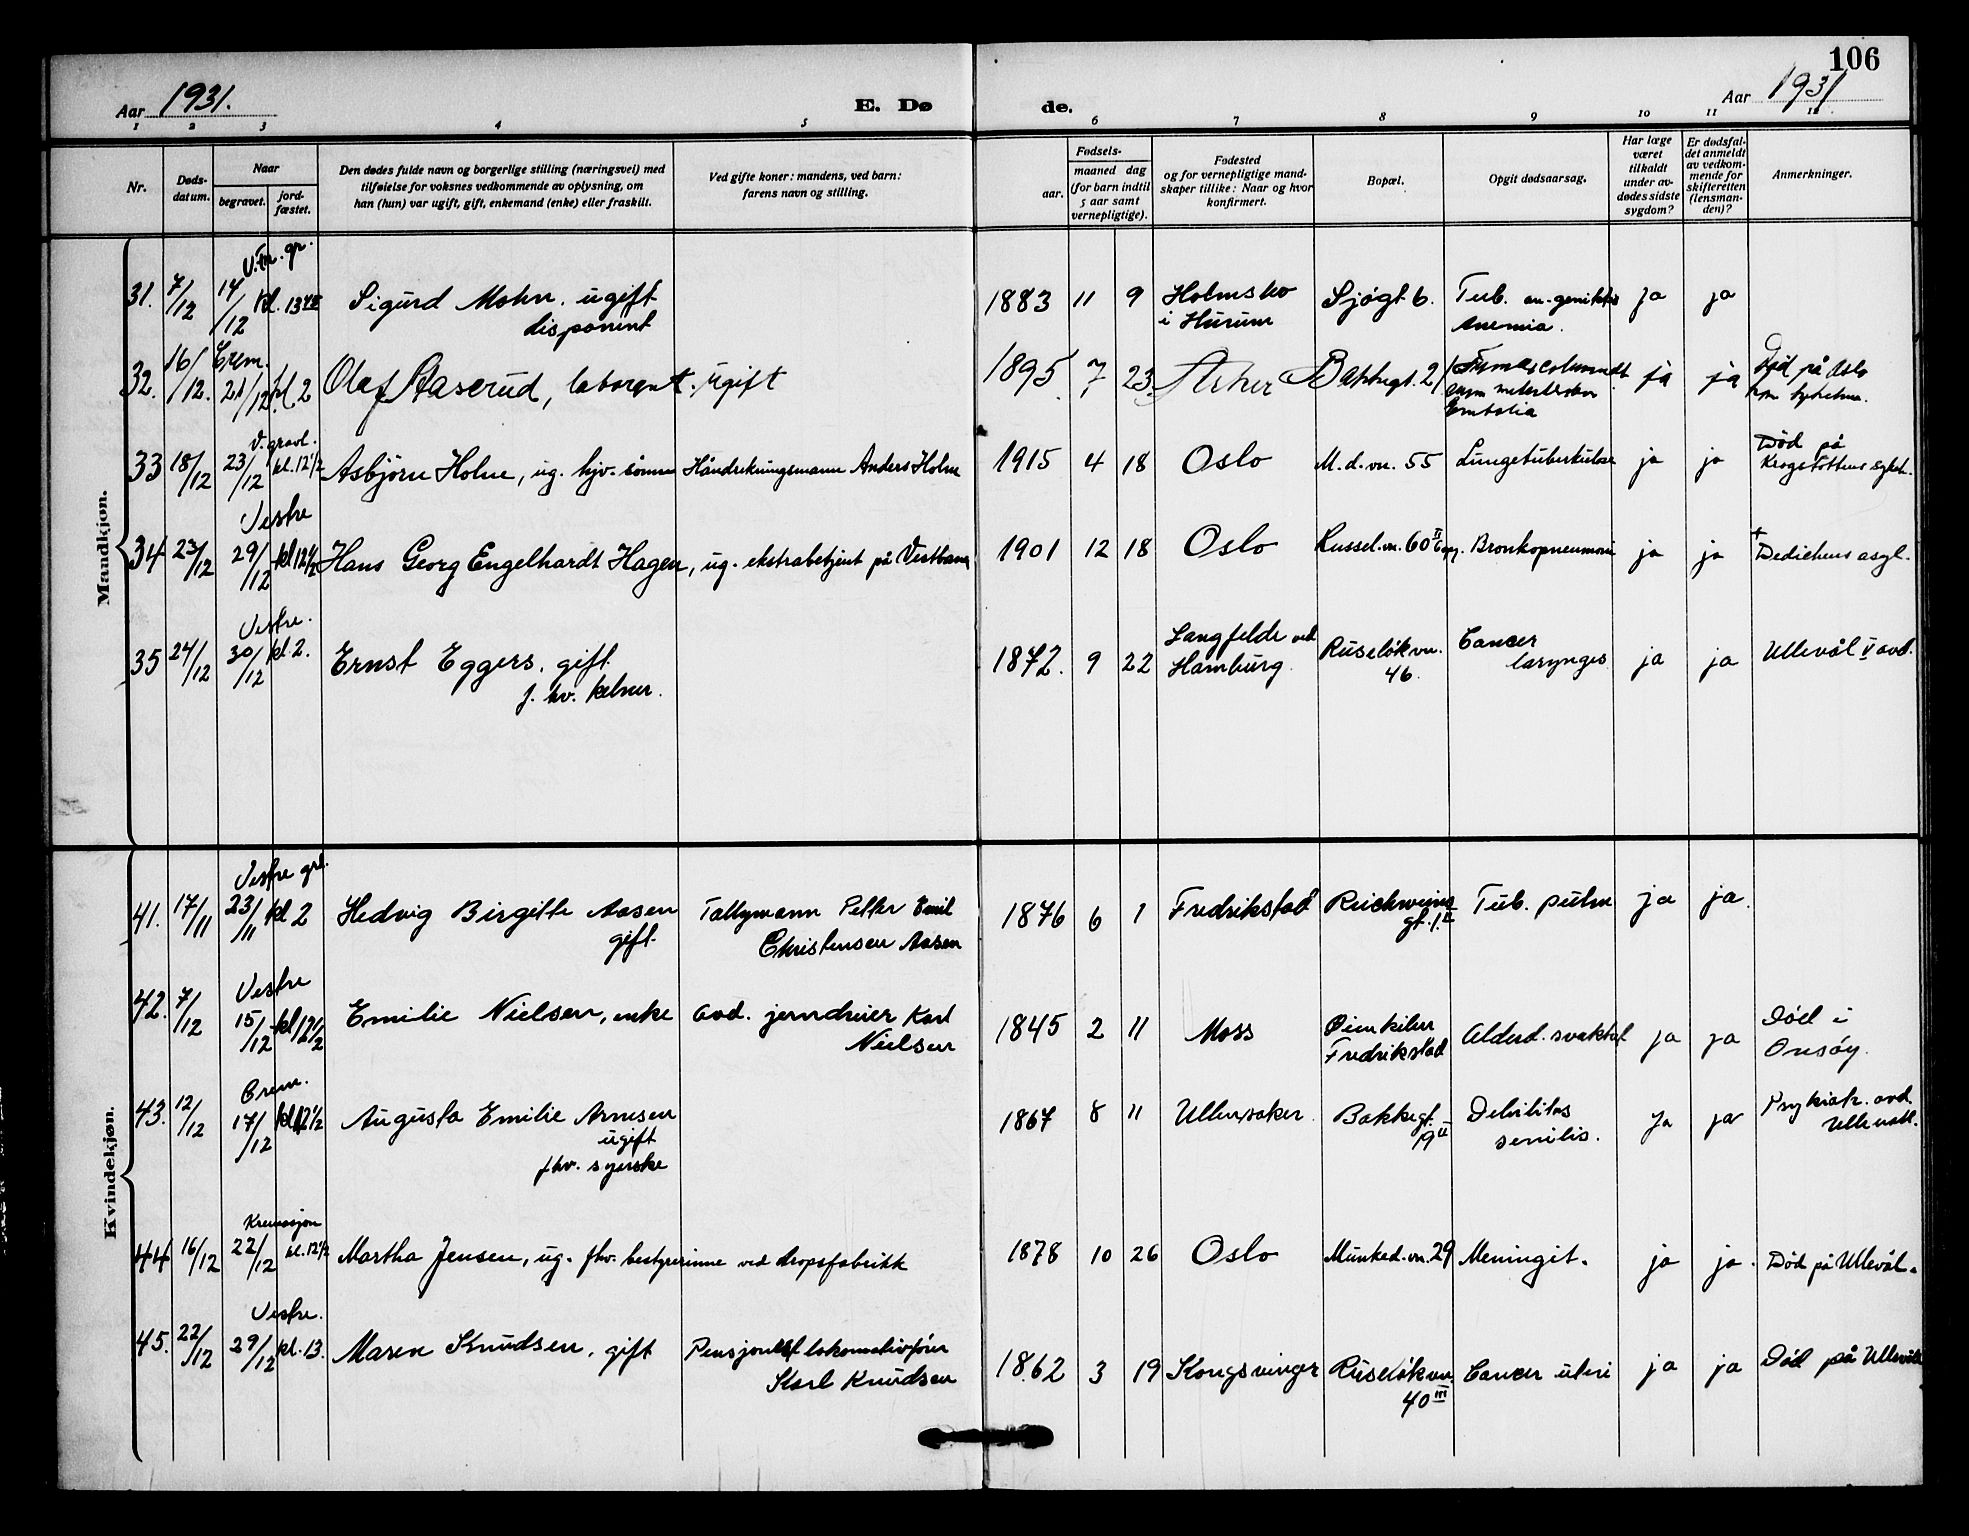 106
Aar 1931.
E. Dø
de.
Aar 1931
1 2 3 4 5 6 7 8 9 10 11 12
Nr.
Døds-
datum.
Naar
begravet.
jord-
fæstet.
Den dødes fulde navn og borgerlige stilling (næringsvei) med
tilføielse for voksnes vedkommende av oplysning, om
han (hun) var ugift, gift, enkemand (enke) eller fraskilt.
Ved gifte koner: mandens, ved barn:
farens navn og stilling.
Fødsels-
aar.
maaned dag
(for barn indtil
5 aar samt
vernepligtige).
Fødested
og for vernepligtige mand-
skaper tillike: Naar og hvor
konfirmert.
Bopæl.
Opgit dødsaarsag.
Har læge
været
tilkaldt
under av-
dødes sidste
sygdom?
Er dødsfal-
det anmeldt
av vedkom-
mende for
skifteretten
(lensman-
den)?
Anmerkninger.
Mandkjøn.
31. 7/12 14/12 kl. Sigurd Mohn. ugift
disponent
1883 11 9 Holmsbo
i Hurum
Sjøgt 6. Tub.
Anemia.
ja ja
32. 16/12. Crem.
21/12 kl 2 Olaf Aaserud, laborant. ugift
1895 7 23 Asker Bakkegt. 21
Embolia
ja ja Død på Oslo
33 18/12 V. gravl.
23/12 kl. 12 1/2 Asbjørn Holm, ug. hjv. sønn Håndrekningsmann Anders Holm
1915 4 18 Oslo M. d. vn. 55 Lungetuberkulose ja ja Død på
Krogstøttens sykh.
34 23/12 Vestre
29/12 kl 12 1/2 Hans Georg Engelhardt Hagen, ug. ekstrabetjent på Vestbanen
1901 12 18 Oslo Russel. vn. 60 II Bronkopneumoni ja ja +
Dedichens asyl.
35 24/12 Vestre.
30/12 kl 2. Ernst Eggers. gift
f. hv. kelner.
1872. 9 22 Langfelde ved
Hamburg.
Ruseløkvn.
46.
Cancer
laryngis
ja ja Ullevål V avd.
Kvindekjøn.
41. 17/11 Vestre grl.
23/11 kl 2 Hedvig Birgitte Aasen
gift
Tallymann Petter Emil
Christensen Aasen
1876 6 1 Fredrikstad Reichweins
gt. 1. II
Tub. pulm ja ja.
42. 7/12 Vestre
15/12 kl 12 1/2 Emilie Nielsen, enke avd. jerndreier Karl
Nielsen
1845 2 11 Moss
Fredrikstad
Alderd. svakhet ja ja Død i
Onsøy.
43. 12/12 Crem.
17/12 kl 12 1/2 Augusta Emilie Arnesen
ugift
fhv. syerske
1867 8 11 Ullensaker Bakkegt.
19 II
Debilitas
senilis.
ja ja Psykiatr. avd.
Ullevål.
44 16/12 Kremasjon
22/12 kl. 12 1/2 Martha Jensen, ug. fhv. bestyrerinne ved dropsfabrikk
1878 10 26 Oslo Munked. vn. 29 Meningit. ja ja. Død på Ullevål.
45. 22/12 Vestre.
29/12 kl. 13. Maren Knudsen, gift Pensjonist lokomotivfører
Karl Knudsen
1862 3 19 Kongsvinger Ruseløkvn.
40 III
Cancer uteri ja ja Død på Ullevål